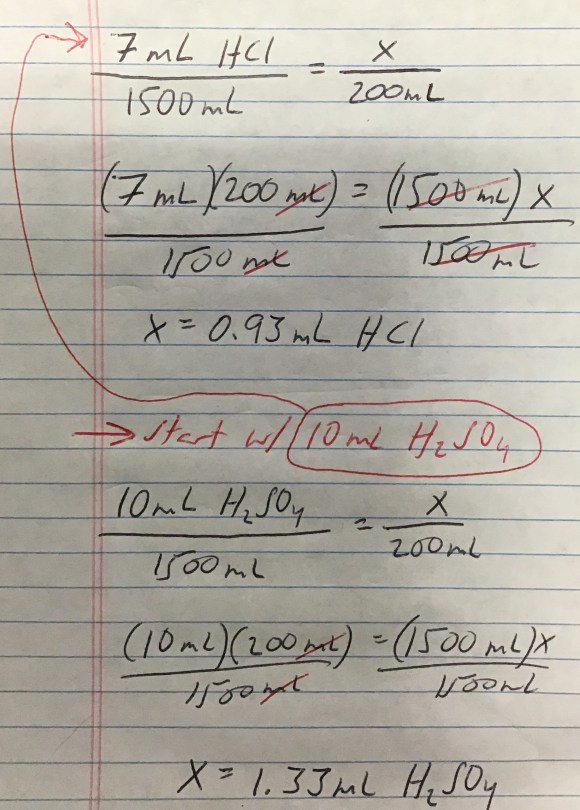 7mL HCl / 1500mL = x / 200mL
(7mL)(200mL) / 1500mL = (1500mL)x / 1500mL
x = 0.93mL HCl
→ start w/ 10mL H₂SO₄
10mL H₂SO₄ / 1500mL = x / 200mL
(10mL)(200mL) / 1500mL = (1500mL)x / 1500mL
x = 1.33mL H₂SO₄